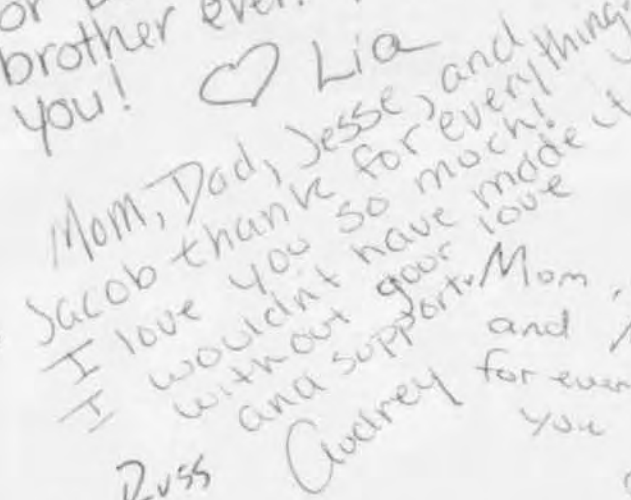 or
brother ever.
you! ♡ Lia
Mom, Dad, Jesse, and
Jacob thank for everything.
I love you so much!
I wouldn't have made it
without your love
and support.
Audrey
Mom,
and
for ever
you
Russ